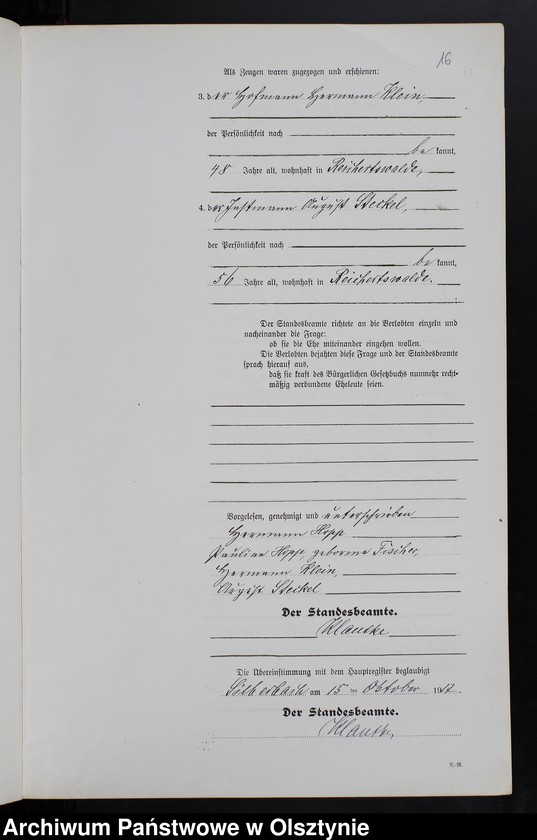 16
Als Zeugen waren zugezogen und erschienen:
3. der Hofmann Hermann Klein
der Persönlichkeit nach
be kannt,
48 Jahre alt, wohnhaft in Reichertswalde,
4. der Instmann August Steckel,
der Persönlichkeit nach
be kannt,
56 Jahre alt, wohnhaft in Reichertswalde.
Der Standesbeamte richtete an die Verlobten einzeln und
nacheinander die Frage:
ob sie die Ehe miteinander eingehen wollen.
Die Verlobten bejahten diese Frage und der Standesbeamte
sprach hierauf aus,
daß sie kraft des Bürgerlichen Gesetzbuchs nunmehr recht-
mäßig verbundene Eheleute seien.
Vorgelesen, genehmigt und unterschrieben
Hermann Hopp
Pauline Hopp, geborene Fischer,
Hermann Klein,
August Steckel
Der Standesbeamte.
Klautke
Die Übereinstimmung mit dem Hauptregister beglaubigt
am 15 ten Oktober 1912.
Der Standesbeamte.
Klautke,
K.-N.
Archiwum Państwowe w Olsztynie